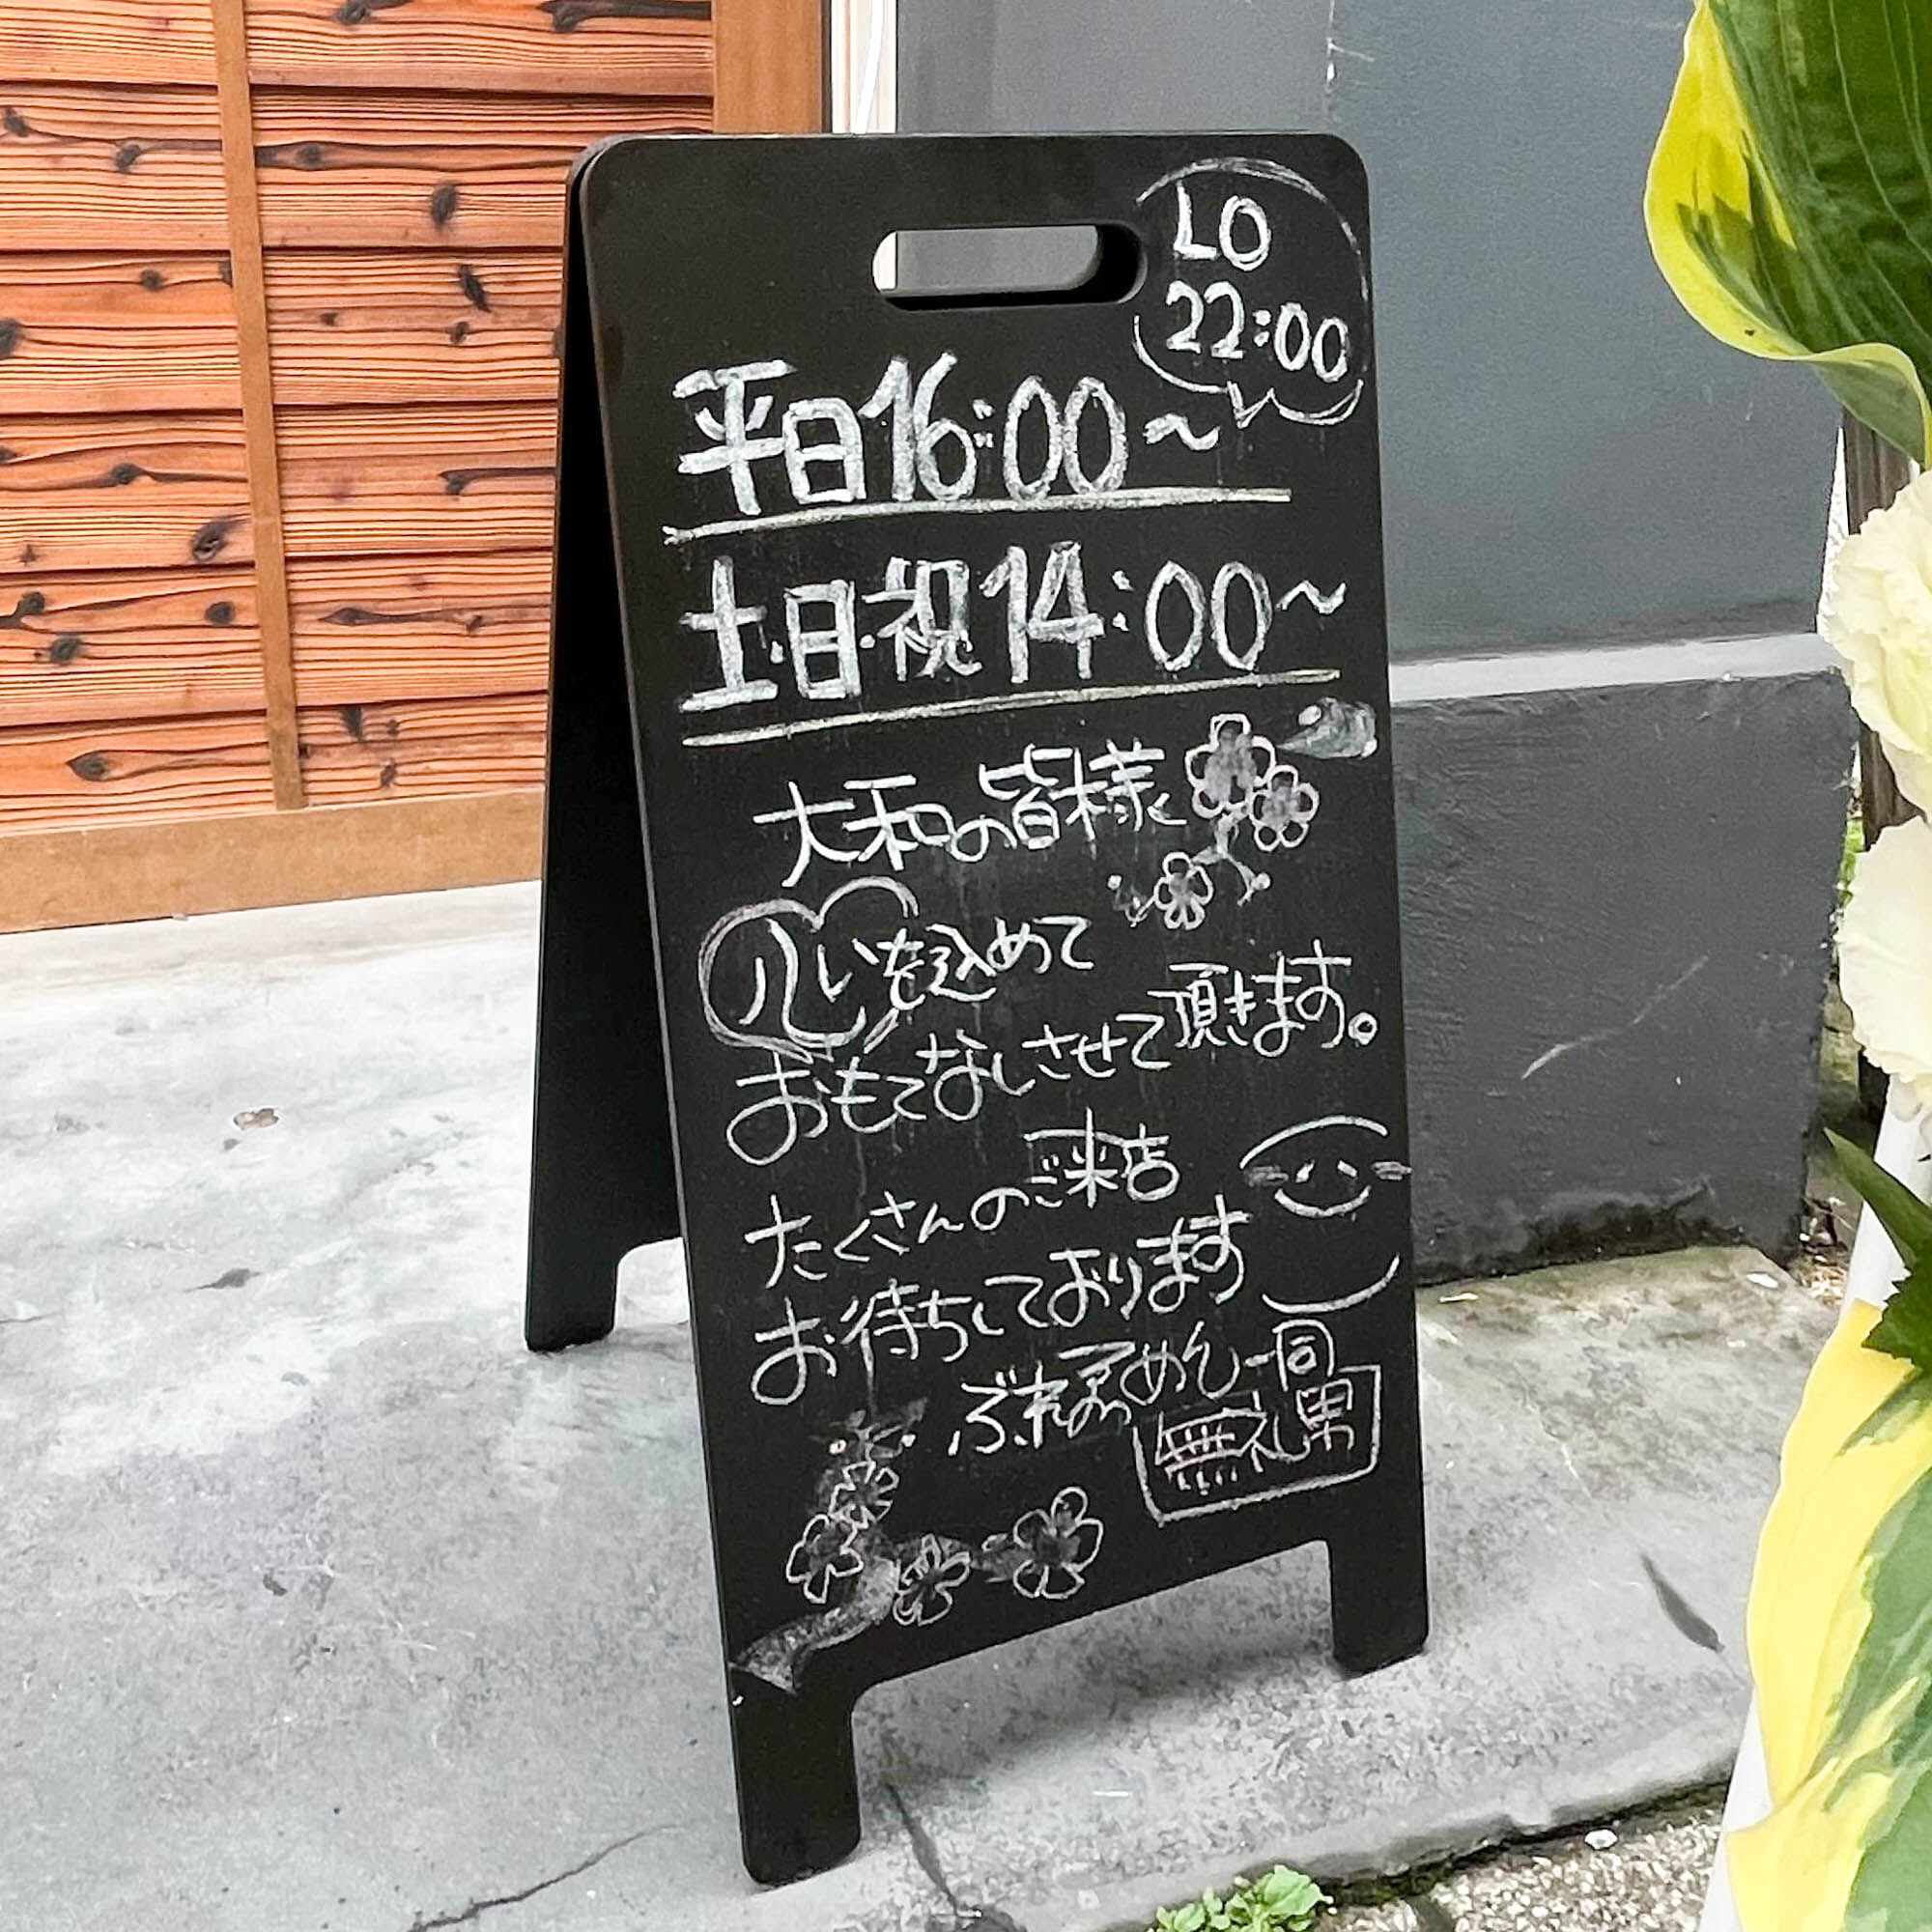 LO
22:00
平日16:00~
土·日·祝14:00~
大和の皆様に
心を込めて
おもてなしさせて頂きます。
たくさんのご来店
お待ちしております
ぶれいめん一同
無礼男